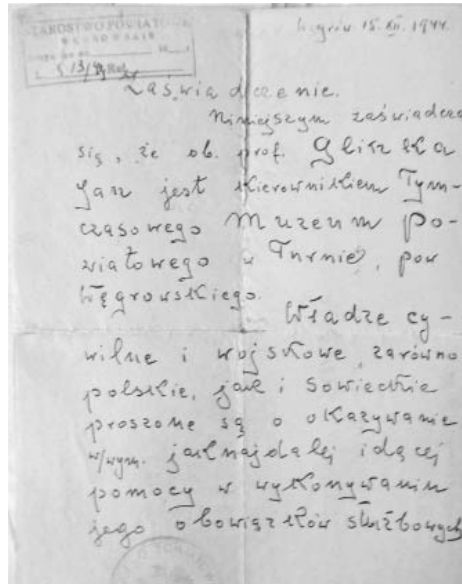 STAROSTWO POWIATOWE
Węgrów 15. XII. 1944.
L. 513/44
Zaświadczenie.
Niniejszym zaświadcza
się, że ob. prof. Gliszka
Jan jest kierownikiem Tym-
czasowego Muzeum Po-
wiatowego w Turnie, pow
Węgrowskiego.
Władze cy-
wilne i wojskowe, zarówno
polskie, jak i sowieckie
proszone są o okazywanie
w/wym. jaknajdalej idącej
pomocy w wykonywaniu
jego obowiązków służbowych